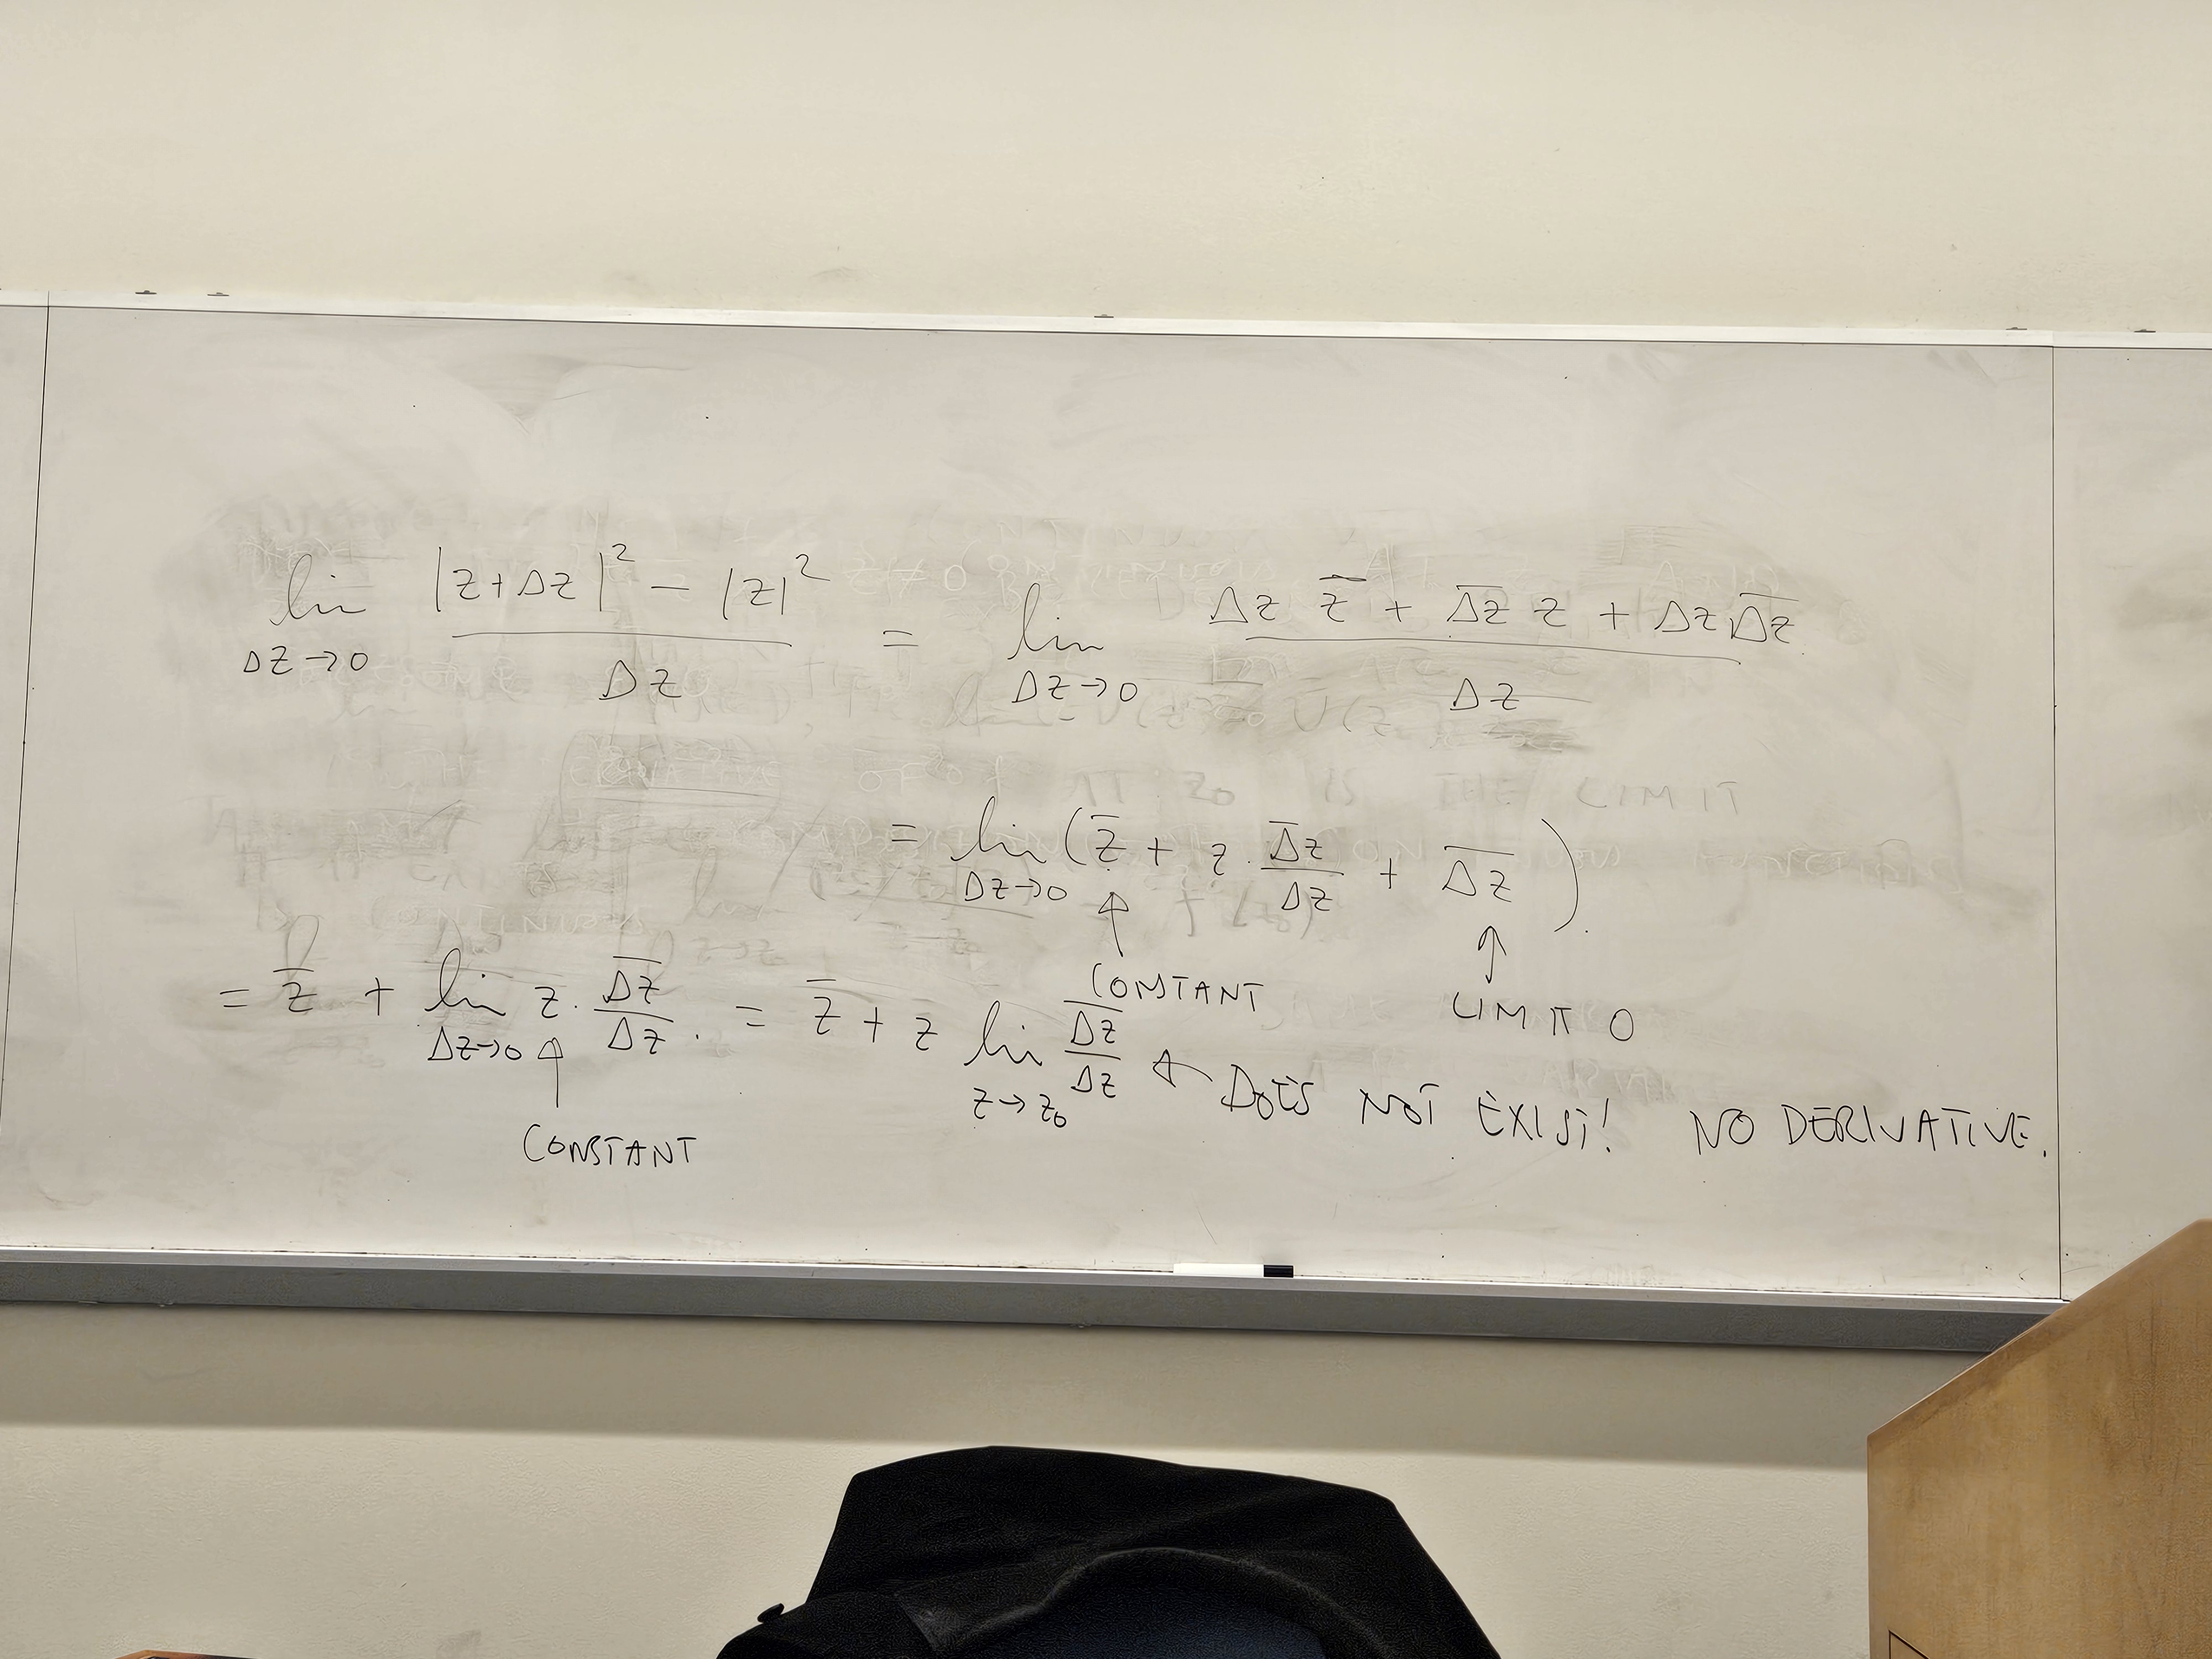 lim Δz→0 (|z+Δz|² − |z|²)/Δz = lim Δz→0 (Δz z̅ + \overline{Δz} z + Δz \overline{Δz})/Δz
= lim Δz→0 (z̅ + z · \overline{Δz}/Δz + \overline{Δz}).
↑ CONSTANT ↑ LIMIT 0
= z̅ + lim Δz→0 z · \overline{Δz}/Δz. = z̅ + z lim z→z₀ \overline{Δz}/Δz ← DOES NOT EXIST! NO DERIVATIVE.
↑ CONSTANT